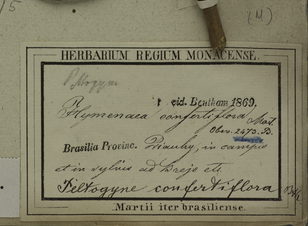 (M)
HERBARIUM REGIUM MONACENSE.
Peltogyne
vid. Bentham 1869.
Hymenaea confertiflora Mart.
Obs. 2473.
Brasilia Provinc. Piauhy, in campis
et in sylvis ad Brejo etc.
Peltogyne confertiflora
Martii iter brasiliense.